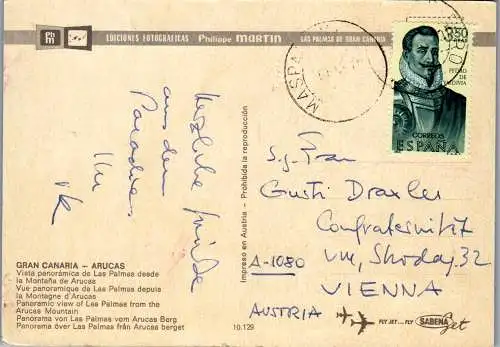 Ph
m
EDICIONES FOTOGRAFICAS Philippe MARTIN LAS PALMAS DE GRAN CANARIA
MASPA
3,50
PEDRO DE
VALDIVIA
CORREOS
ESPAÑA
Herzliche Grüsse
aus dem
Paradies
Ihr
Impreso en Austria - Prohibida la reproducción
S.g. Frau
Gusti Draxler
Confraternität
VIII, Skodag. 32
A-1080
VIENNA
AUSTRIA
GRAN CANARIA – ARUCAS
Vista panorámica de Las Palmas desde
la Montaña de Arucas
Vue panoramique de Las Palmas depuis
la Montagne d'Arucas
Panoramic view of Las Palmas from the
Arucas Mountain
Panorama von Las Palmas vom Arucas Berg
Panorama över Las Palmas från Arucas berget
10.129
FLY JET... FLY SABENA Jet